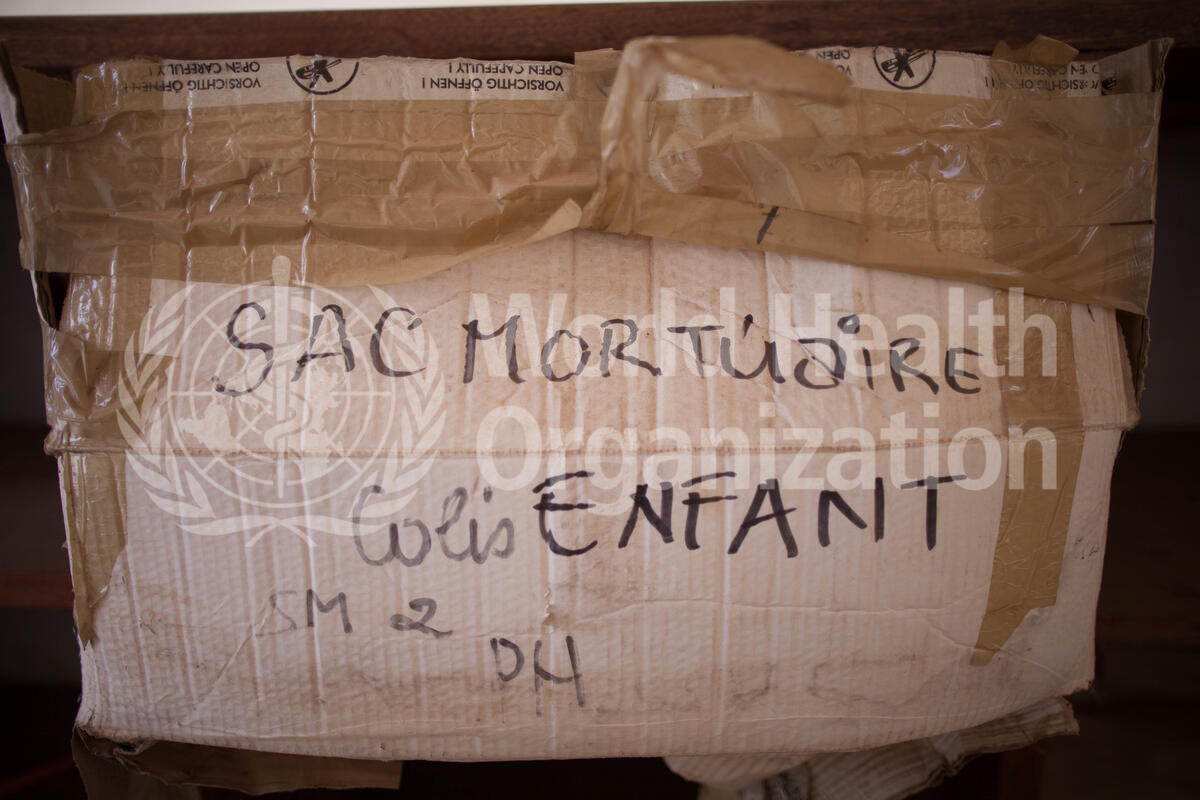 VORSICHTIG ÖFFNEN !
OPEN CAREFULLY !
VORSICHTIG ÖFFNEN !
OPEN CAREFULLY !
SAC MORTUAIRE
World Health
Organization
Colis ENFANT
SM 2
DH